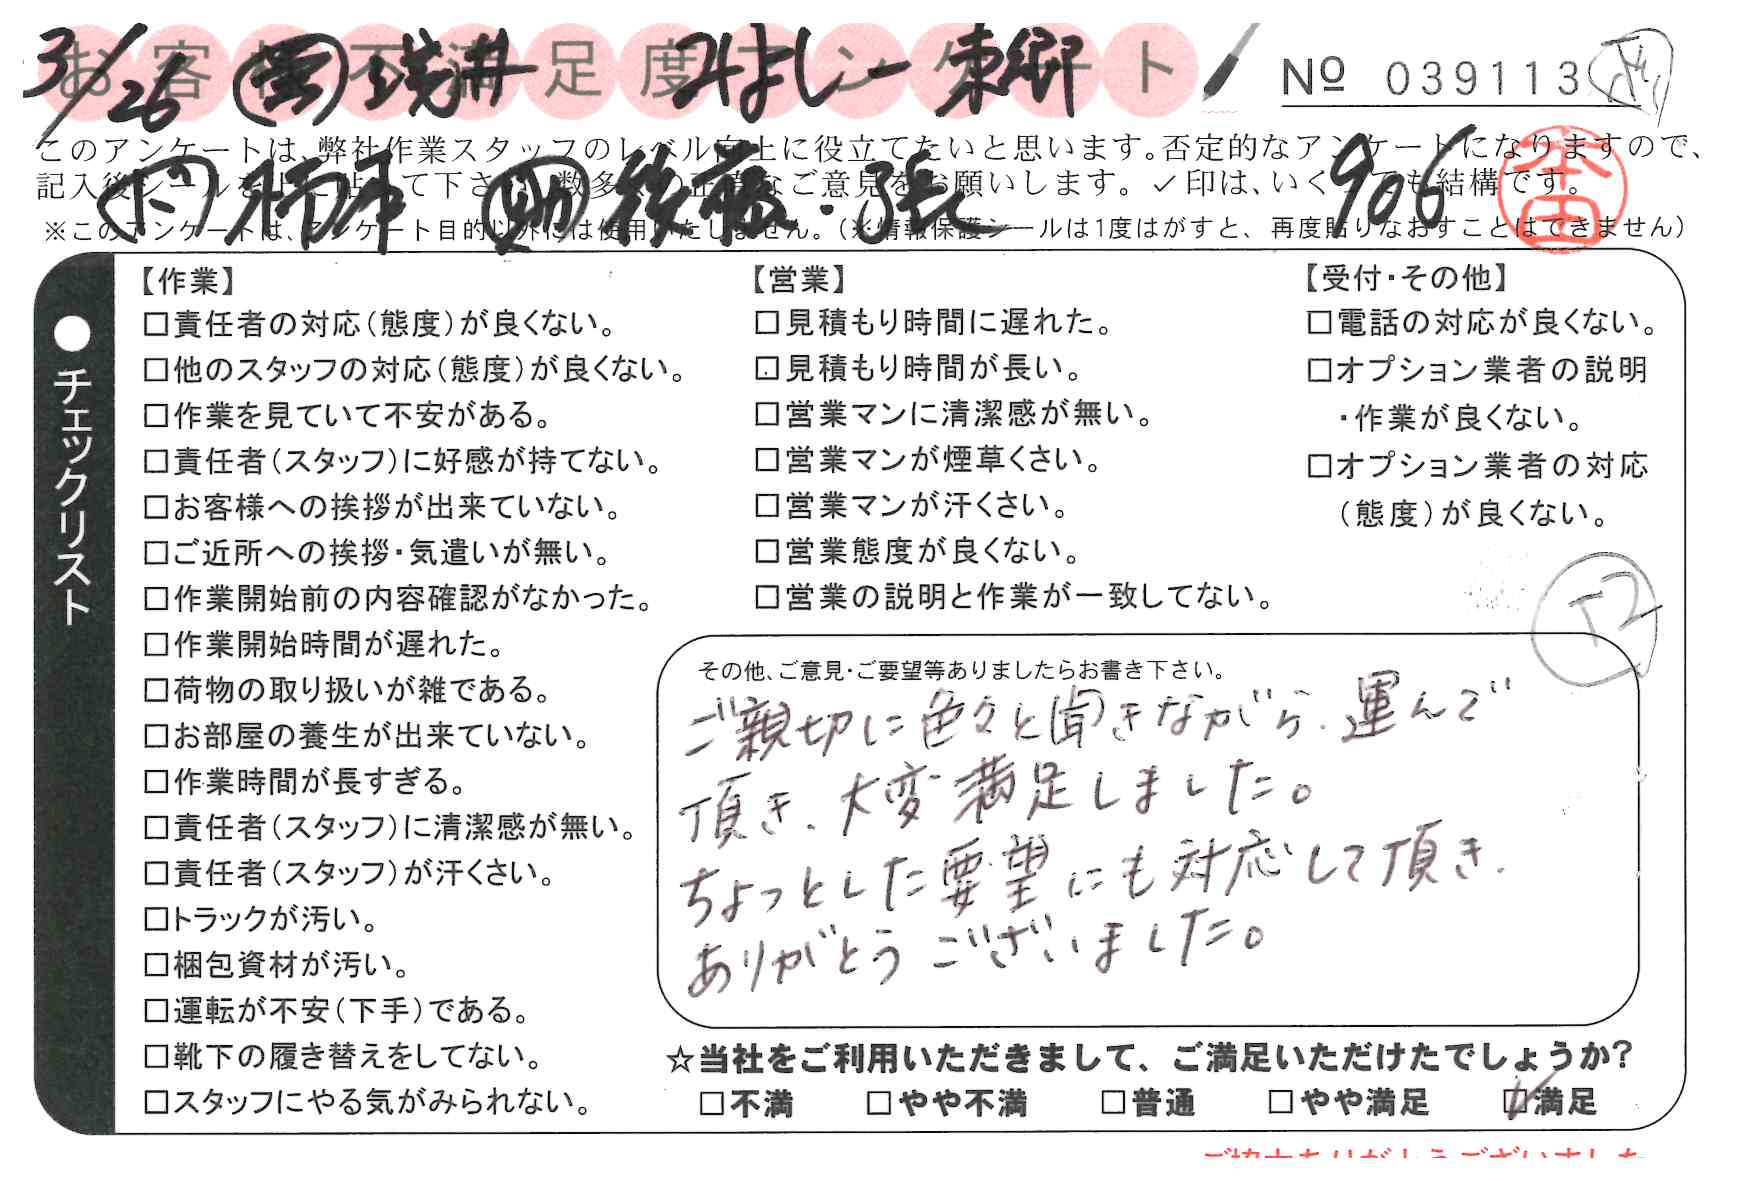 お客様不満足度アンケート
3/26 ㊠浅井 みよし～東郷
Nº 039113
このアンケートは、弊社作業スタッフのレベル向上に役立てたいと思います。否定的なアンケートになりますので、
記入後シールを上に貼って下さい。数多くの正直なご意見をお願いします。✓印は、いくつでも結構です。
後藤・
906
本田
※このアンケートは、アンケート目的以外には使用いたしません。(※情報保護シールは1度はがすと、再度貼りなおすことはできません)
●チェックリスト
【作業】
□責任者の対応(態度)が良くない。
□他のスタッフの対応(態度)が良くない。
□作業を見ていて不安がある。
□責任者(スタッフ)に好感が持てない。
□お客様への挨拶が出来ていない。
□ご近所への挨拶・気遣いが無い。
□作業開始前の内容確認がなかった。
□作業開始時間が遅れた。
□荷物の取り扱いが雑である。
□お部屋の養生が出来ていない。
□作業時間が長すぎる。
□責任者(スタッフ)に清潔感が無い。
□責任者(スタッフ)が汗くさい。
□トラックが汚い。
□梱包資材が汚い。
□運転が不安(下手)である。
□靴下の履き替えをしてない。
□スタッフにやる気がみられない。
【営業】
□見積もり時間に遅れた。
□見積もり時間が長い。
□営業マンに清潔感が無い。
□営業マンが煙草くさい。
□営業マンが汗くさい。
□営業態度が良くない。
□営業の説明と作業が一致してない。
【受付・その他】
□電話の対応が良くない。
□オプション業者の説明
・作業が良くない。
□オプション業者の対応
(態度)が良くない。
その他、ご意見・ご要望等ありましたらお書き下さい。
ご親切に色々と聞きながら、運んで
頂き、大変満足しました。
ちょっとした要望にも対応して頂き、
ありがとうございました。
☆当社をご利用いただきまして、ご満足いただけたでしょうか?
□不満 □やや不満 □普通 □やや満足 ☑満足
ご協力ありがとうございました